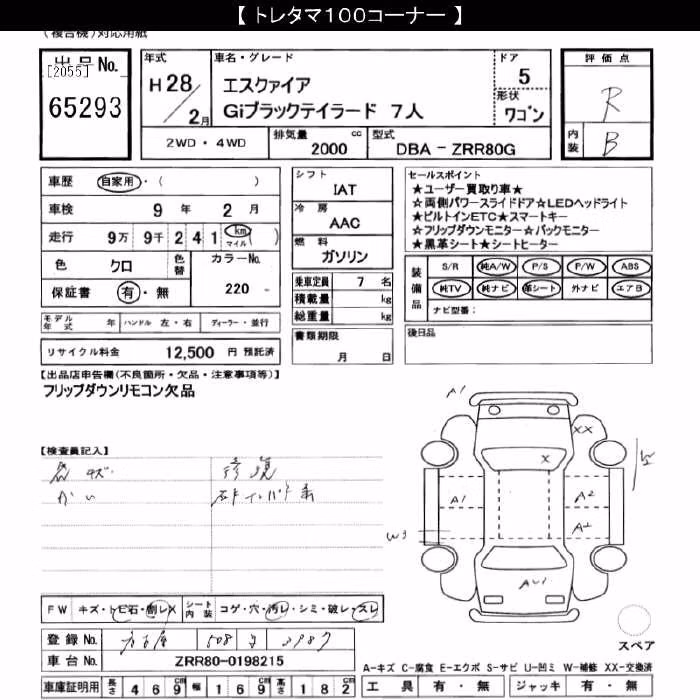 【 トレタマ100コーナー 】
(複合機)対応用紙
出品No.
[2055]
65293
年式
H28/2月
車名・グレード
エスクァイア
Giブラックテイラード 7人
ドア
5
形状
ワゴン
評価点
R
内装
B
2WD・4WD
排気量
2000 cc
型式
DBA － ZRR80G
車歴 自家用・( )
車検 9年 2月
走行 9万 9千 2 4 1 km マイル ( )
色 クロ 色替 カラーNo. 220
保証書 有・無
シフト
IAT
冷房
AAC
燃料
ガソリン
乗車定員 7 名
積載量 kg
総重量 kg
書類期限
月 日
セールスポイント
★ユーザー買取り車★
☆両側パワースライドドア☆LEDヘッドライト
★ビルトインETC★スマートキー
☆フリップダウンモニター☆バックモニター
★黒革シート★シートヒーター
装備品
S/R 純A/W P/S P/W ABS
純TV 純ナビ 革シート 外ナビ エアB
ナビ型番:
後日品
モデル年式 年 ハンドル 左・右 ディーラー・並行
リサイクル料金 12,500 円 預託済
【出品店申告欄(不良箇所・欠品・注意事項等)】
フリップダウンリモコン欠品
【検査員記入】
修復
A1
XX
X
A1
A2
W3
FW キズ・トビ石・割レX シート内装 コゲ・穴・汚レ・シミ・破レ・スレ
登録No. 名古屋 508
車台No. ZRR80-0198215
車庫証明用 長さ 4 6 9 cm 幅 1 6 9 cm 高さ 1 8 2 cm
スペア
A-キズ C-腐食 E-エクボ S-サビ U-凹ミ W-補修 XX-交換済
工具 有・無 ジャッキ 有・無